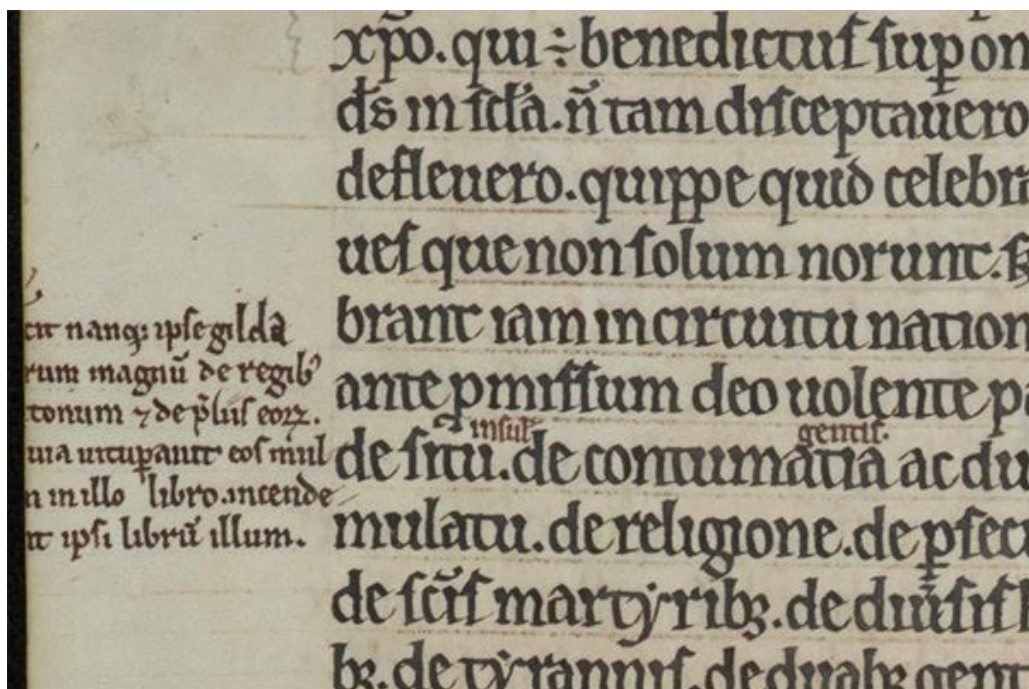 xp̄o. qui ÷ benedictuſ ſuꝑ on
d̄s in ſcl̄a. n̄ tam diſceptauero
defleuero. quippe quid celebra
ueſ que non ſolum norunt. ſꝫ
brant iam in circuitu nation
ante ꝓmiſſum deo uolente p
inſul̄ gentiſ.
de ſitu. de contumatia ac du
mulatu. de religione. de ꝑſec
de ſc̄iſ martẏribꝫ. de diu̅ſiſ
bꝫ. de tẏranniſ. de duabꝫ gent
cit nanqꝫ ipſe gilda
rum magnū de regibꝰ
tonum ⁊ de p̄luſ eoꝝ.
uia uituꝑauit eoſ mul
n in illo libro. incende
nt ipſi librū illum.